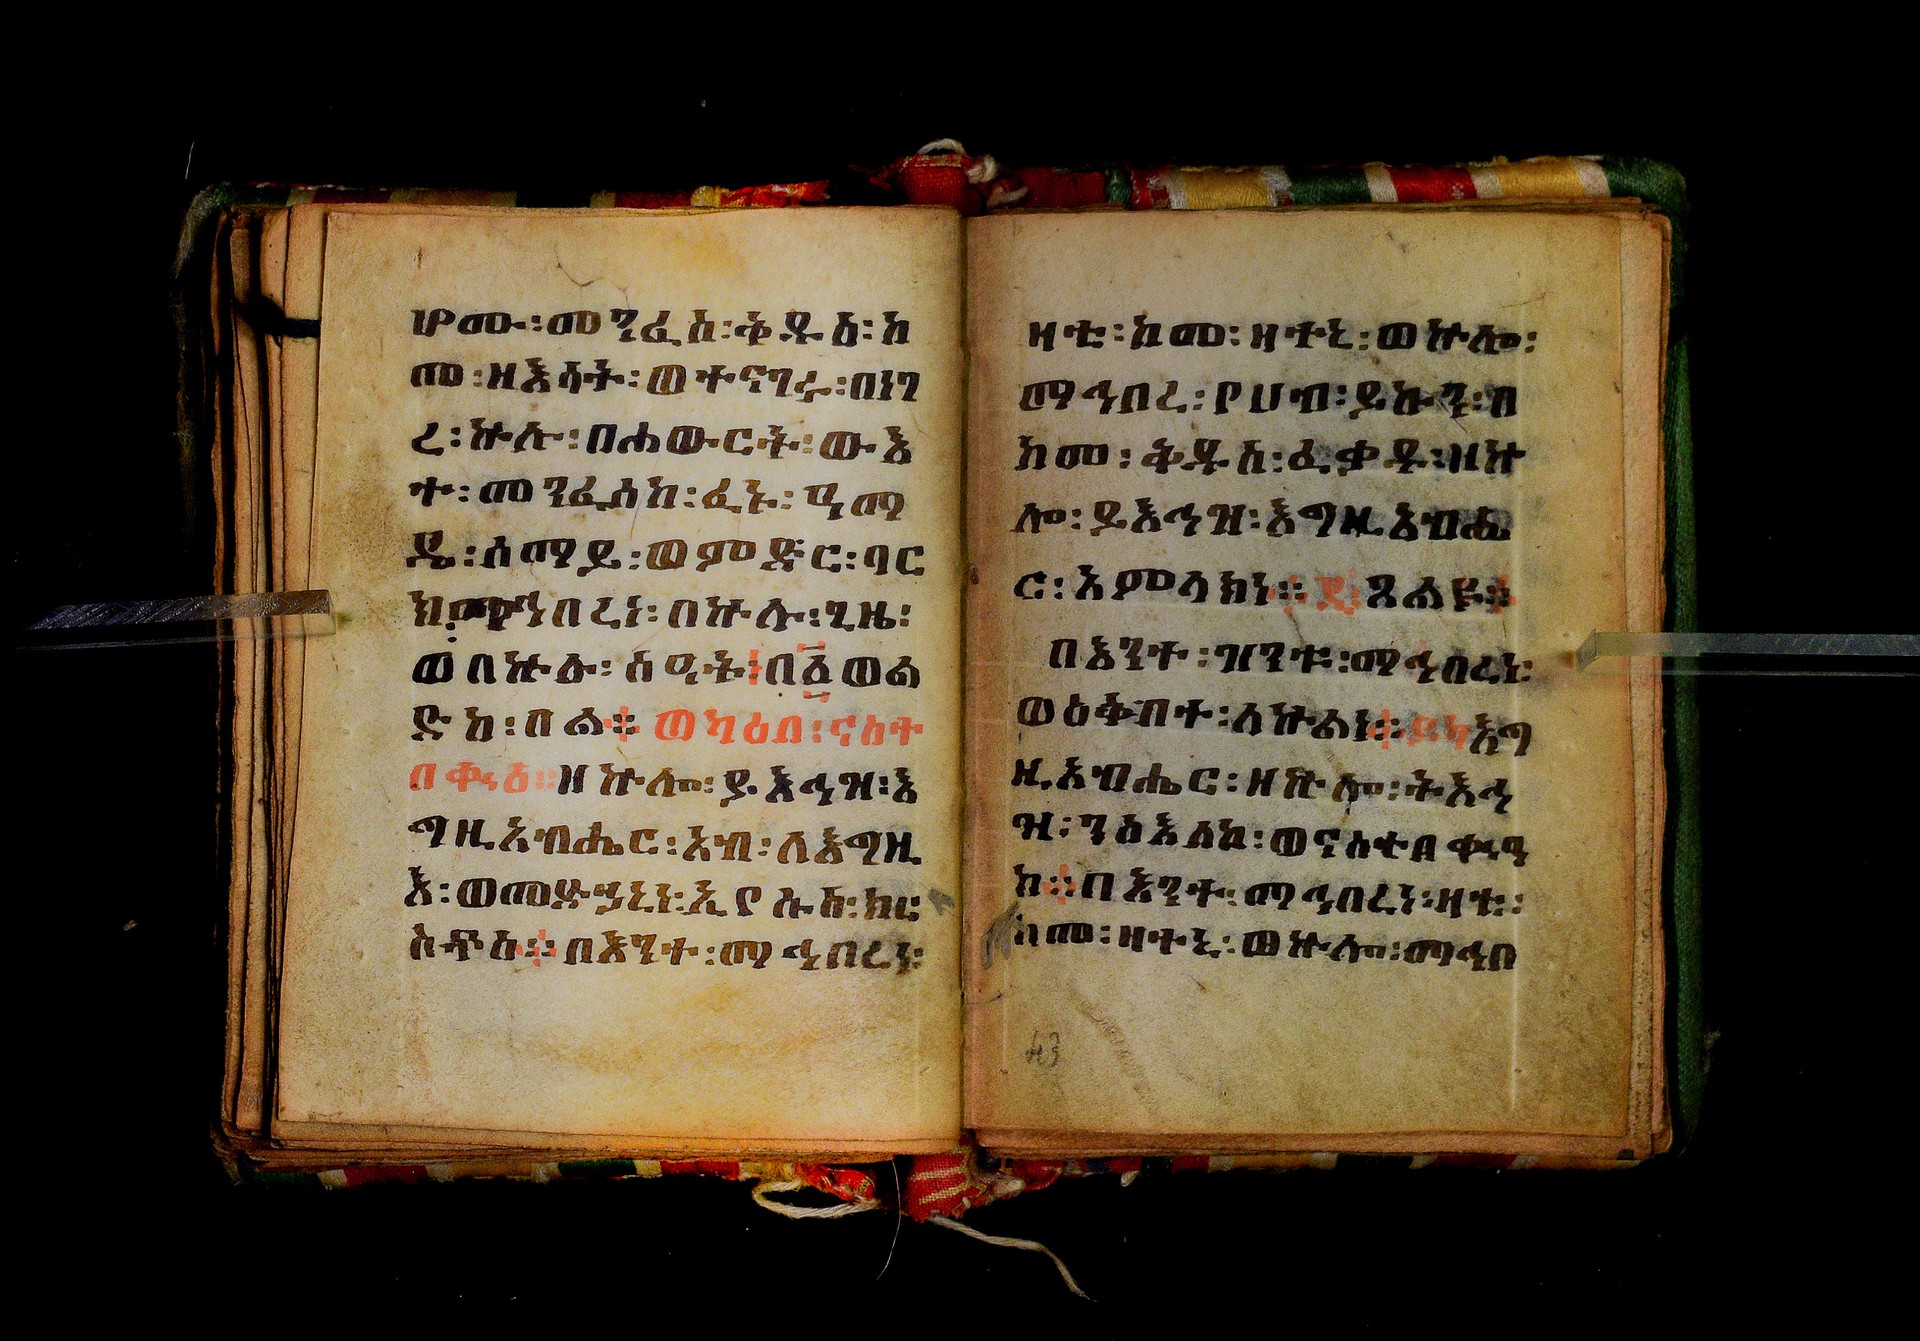 ሆሙ፡መንፈስ፡ቅዱስ፡ከ
መ፡ዘእሳት፡ወተናገሩ፡በነገ
ረ፡ኵሉ፡በሐውርት፡ውእ
ቱ፡መንፈሰከ፡ፈኑ፡
ዴ፡ሰማይ፡ወምድር፡ባር
በረነ፡በኵሉ፡ጊዜ፡
ወበኵሉ፡ሰዓት፡በ፩ወል
ድከ፡በል። ወካዕበ፡ናስተ
በቍዕ።ዘኵሎ፡ይእኅዝ፡እ
ግዚአብሔር፡አብ፡ለእግዚ
እ፡ወመድኃኒነ፡ኢየሱስ፡ክር
ስቶስ። በእንተ፡ማኅበረነ፡
ዛቲ፡ከመ፡ዛተኒ፡ወኵሎ፡
ማኅበረ፡የሀብ፡ይኩን፡በ
ከመ፡ቅዱስ፡ፈቃዱ፡ዘኵ
ሎ፡ይእኅዝ፡እግዚአብሔ
ር፡አምላክነ። ጸልዩ።
በእንተ፡ዛንቱ፡ማኅበረነ፡
ወዕቅበተ፡ለኵልነ። ይካእግ
ዚአብሔር፡ዘኵሎ፡ትእኅ
ዝ፡ንስእለከ፡ወናስተበቍዓ
ከ። በእንተ፡ማኅበረነ፡ዛቲ፡
ከመ፡ዛተኒ፡ወኵሎ፡ማኅበ
43